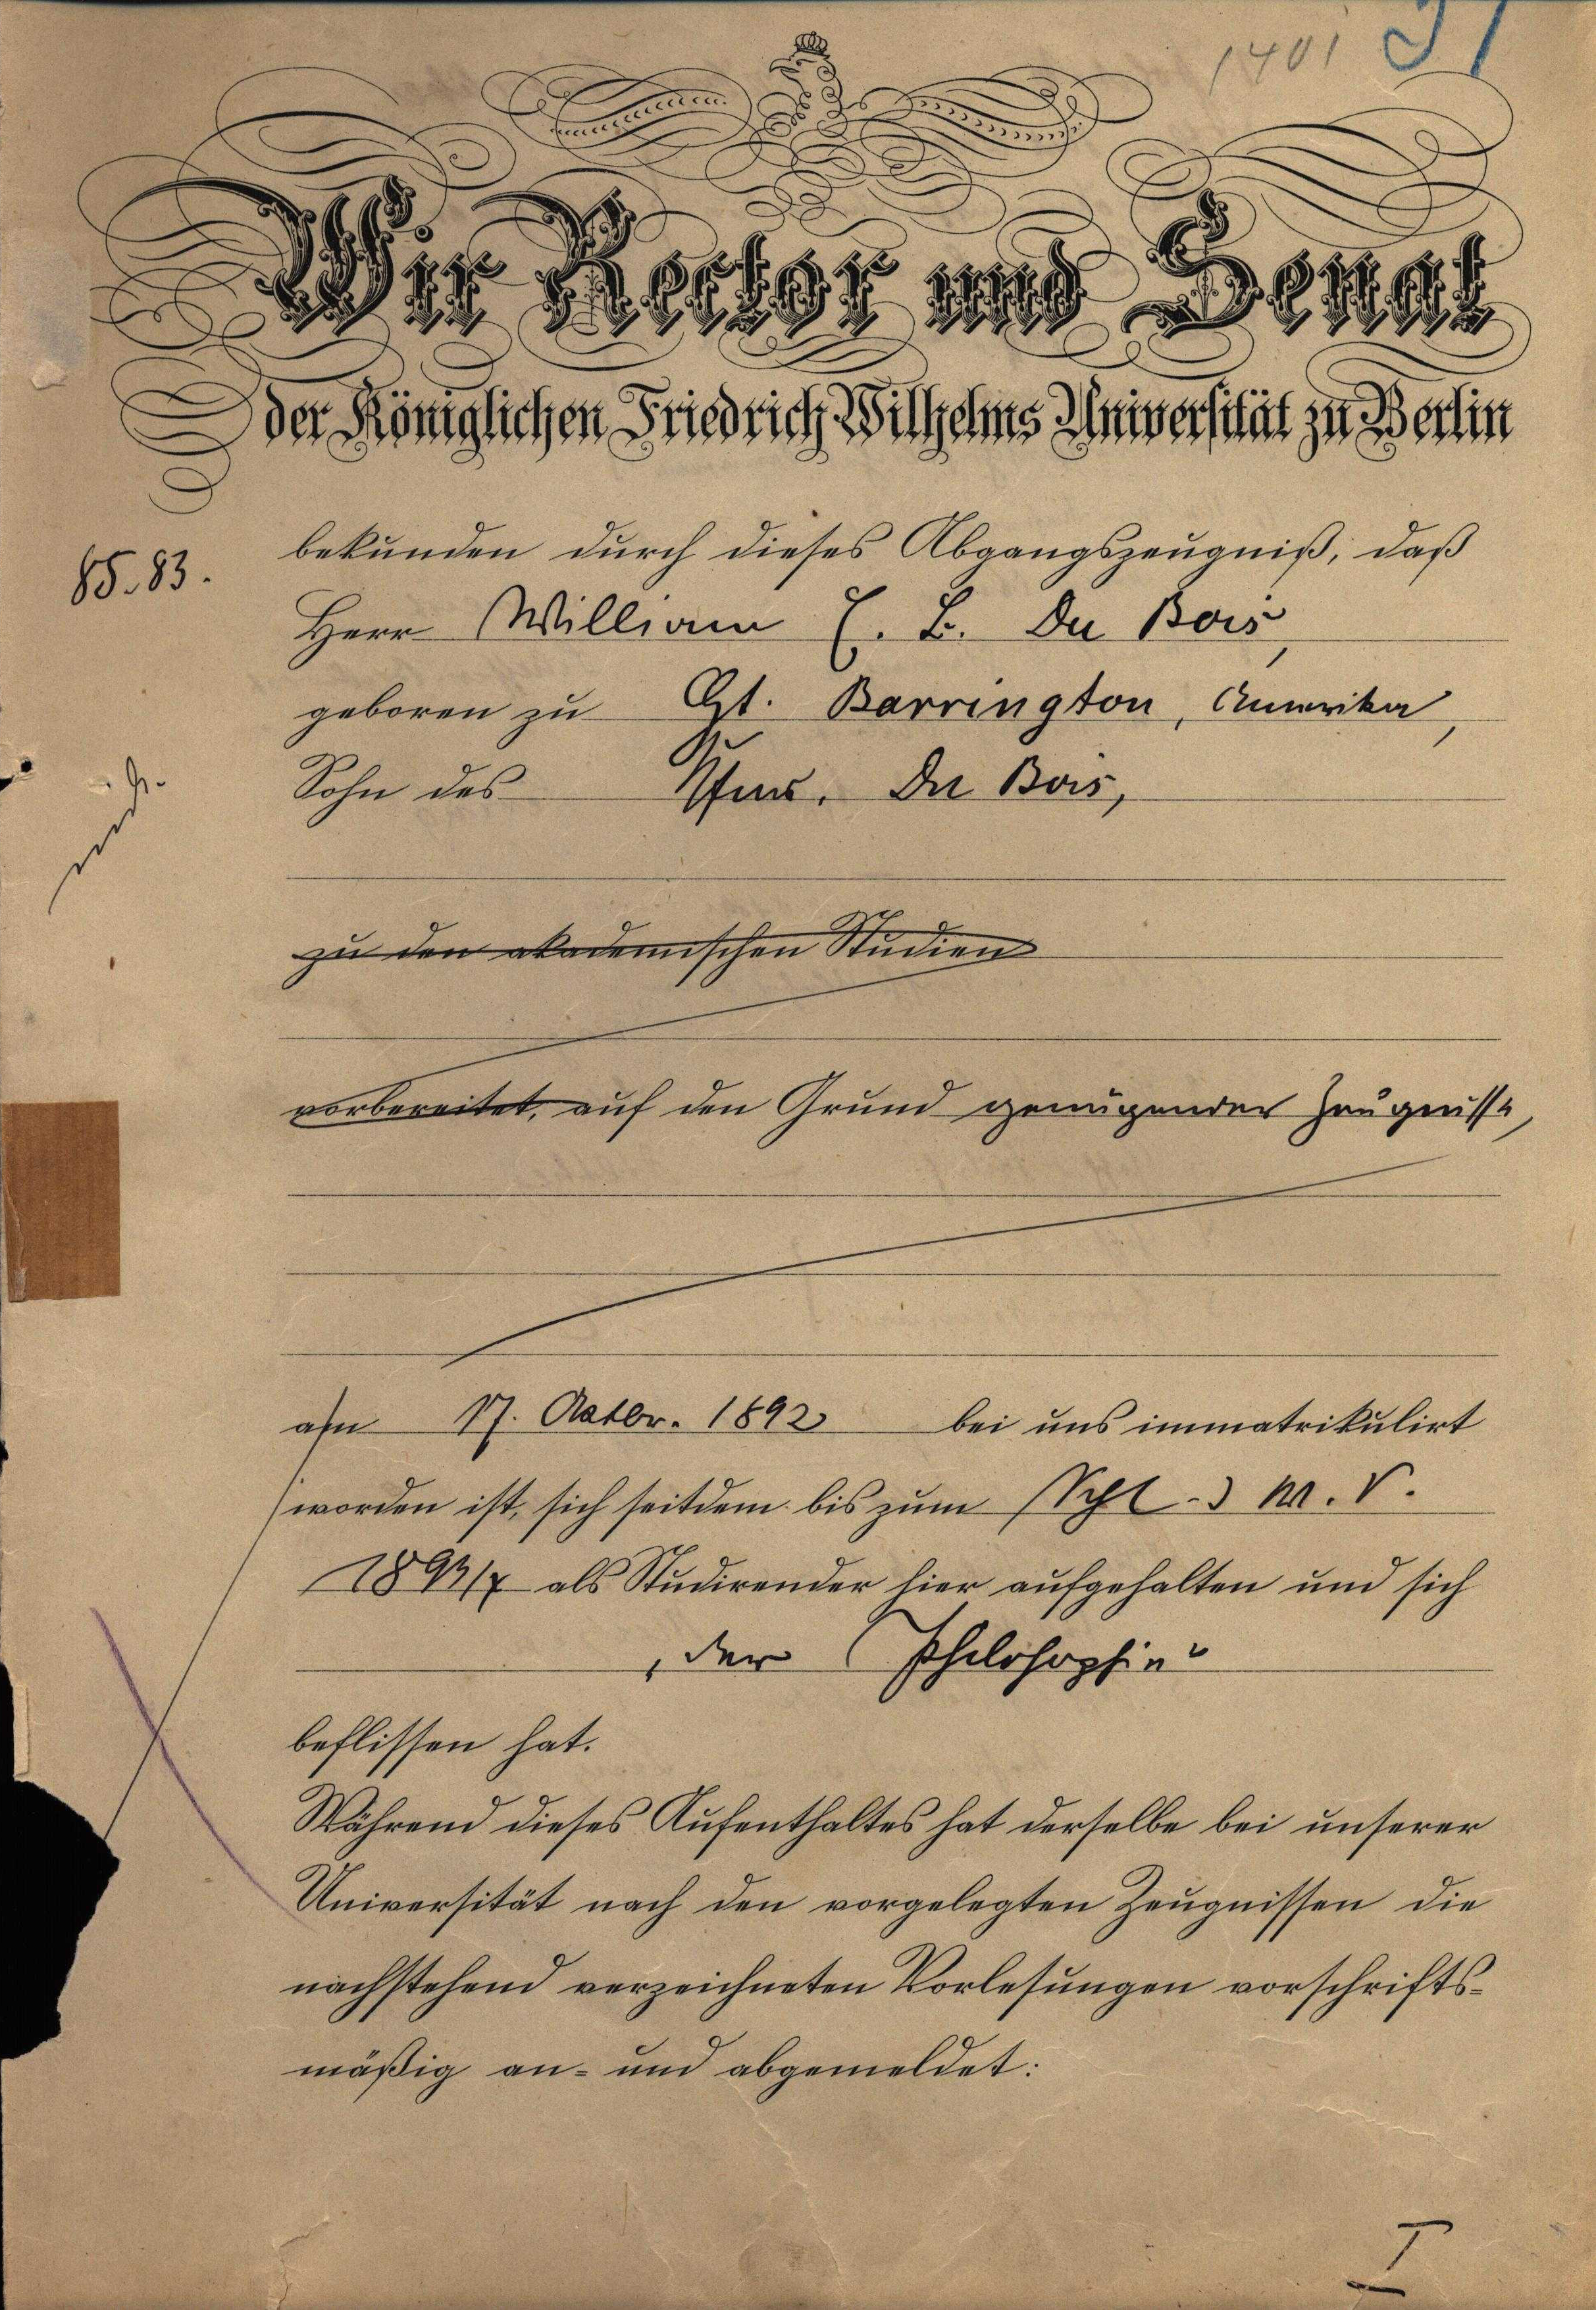 1401 31
Wir Rector und Senat
der Königlichen Friedrich Wilhelms Universität zu Berlin
85.83.
bekunden durch dieses Abgangszeugniß, daß
Herr William E. B. Du Bois,
geboren zu Gt. Barrington, Amerika,
Sohn des Du Bois,
zu den akademischen Studien
vorbereitet, auf den Grund genügender Zeugnisse,
am 17. Octbr. 1892 bei uns immatrikulirt
worden ist, sich seitdem bis zum
1893/4 als Studirender hier aufgehalten und sich
„der Philosophie“
beflissen hat.
Während dieses Aufenthaltes hat derselbe bei unserer
Universität nach den vorgelegten Zeugnissen die
nachstehend verzeichneten Vorlesungen vorschrifts-
mäßig an- und abgemeldet:
I